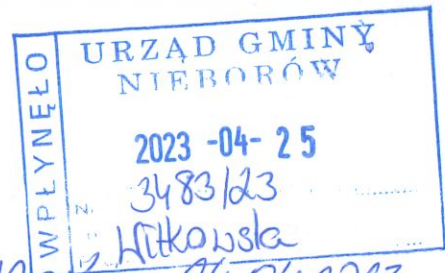 WPŁYNĘŁO
URZĄD GMINY
NIEBORÓW
2023 -04- 25
3483/23
Witkowska